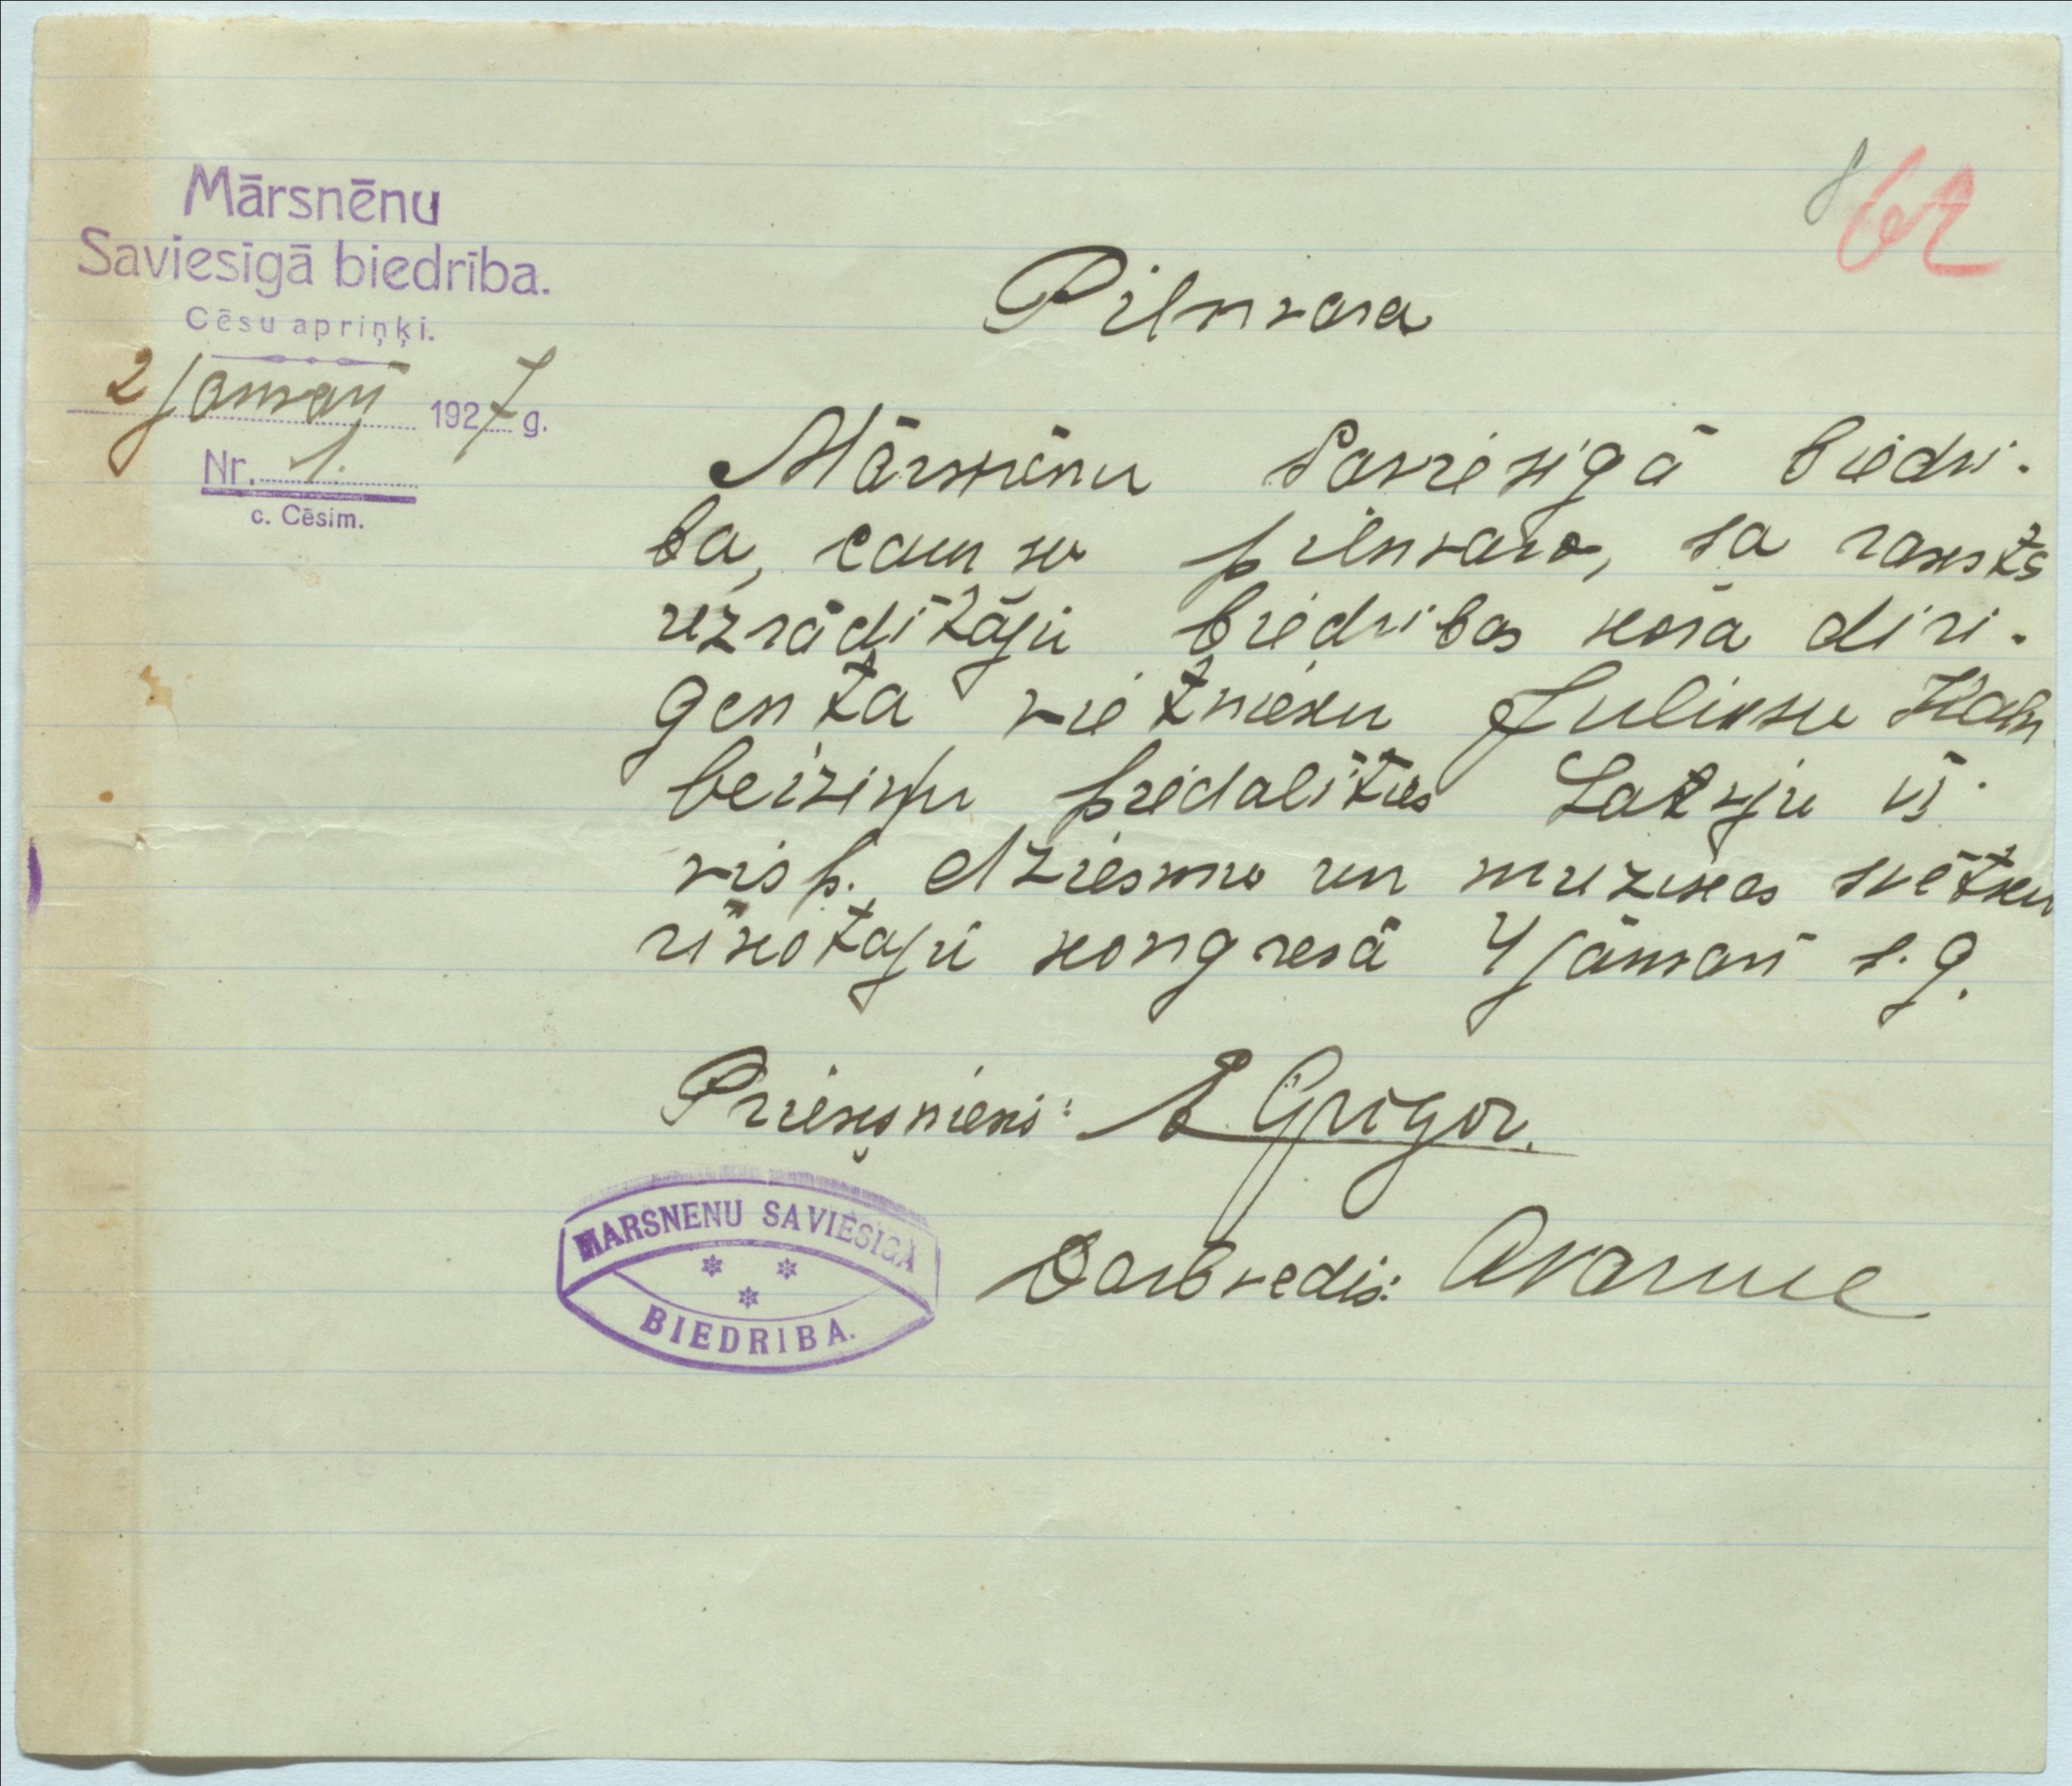 Mārsnēnu
Saviesīgā biedrība.
Cēsu apriņķī.
2 janvarī 1927 g.
Nr. 1.
c. Cēsim.
62
Pilnvara
Mārsnēnu Saviesigā biedri-
ba, caur so pilnvaro, sa raksts
uzrādītāju biedribas kora diri-
genta vietnieku Juliusu Kaln
beiziņu piedalīties Latvju VI
visp. dziesmu un muzikas svētku
rīkotaju kongresā 4 jānvarī s. g.
Priekšnieks: Grigor.
MARSNENU SAVIESIGA
BIEDRIBA.
Darbvedis: